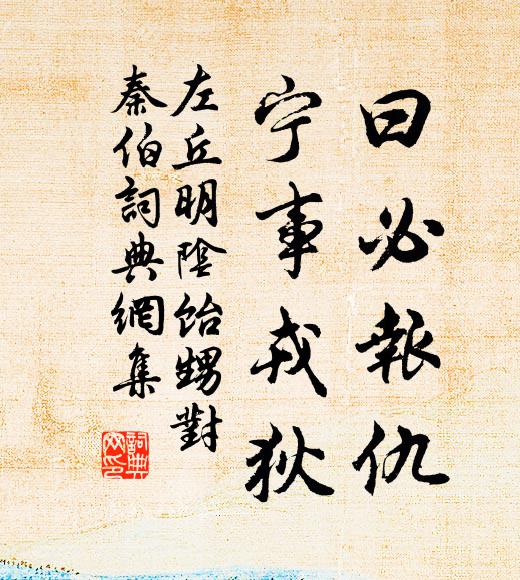 曰必報仇
宁事戎狄
左丘明陰飴甥對
秦伯詞典網集
詞典网印